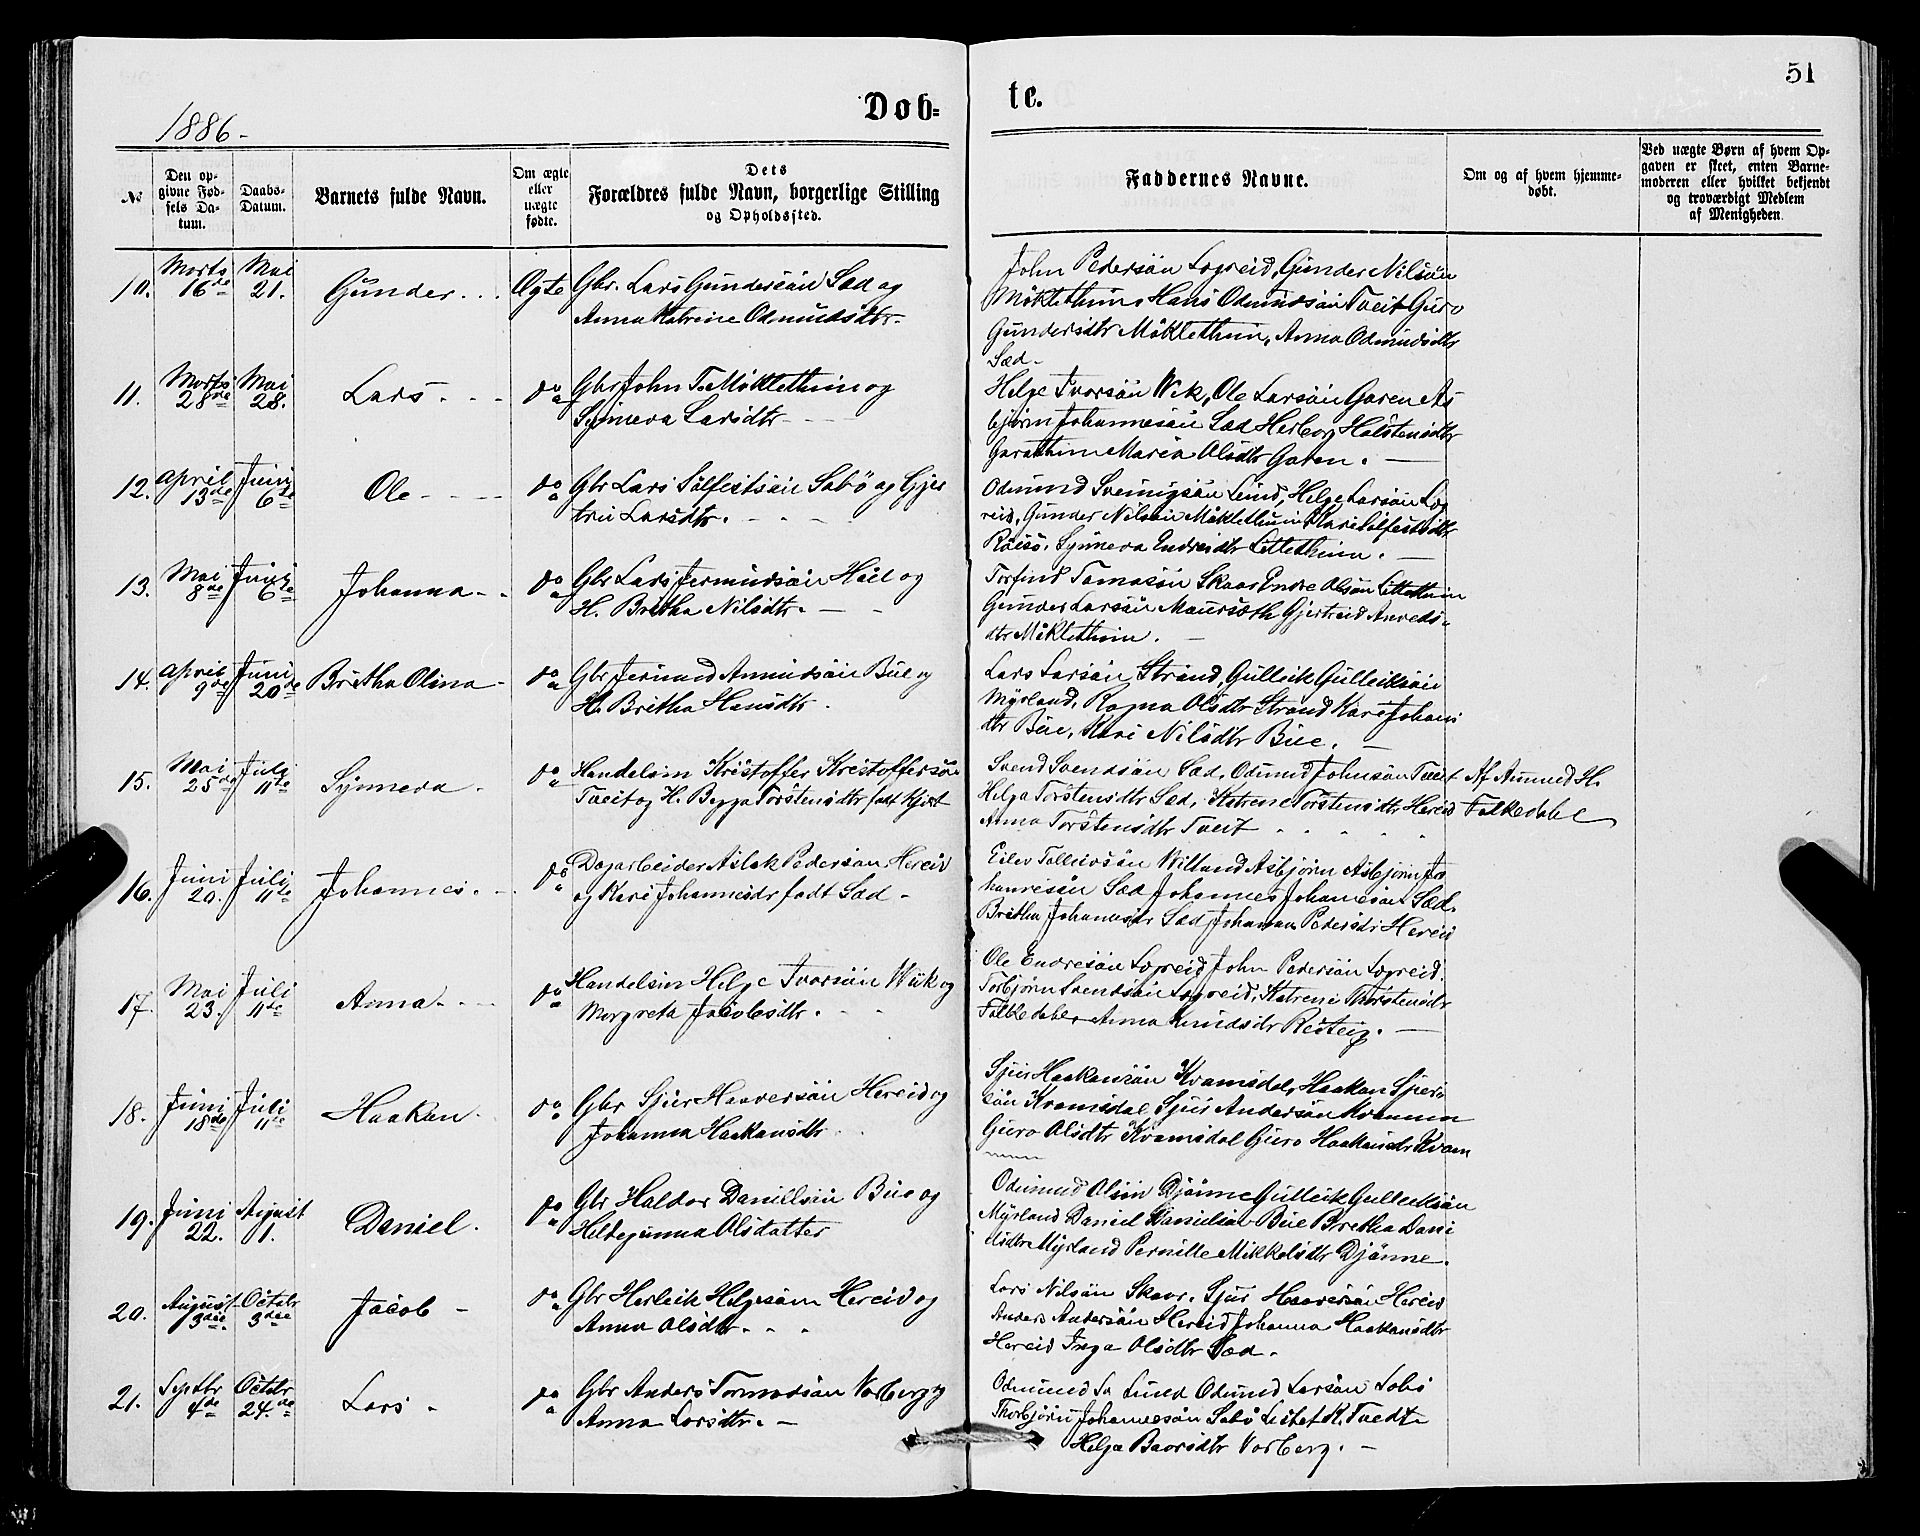 51
Døb=
te.
1886-
No
Den op-
givne Fød-
sels Da-
tum.
Daabs-
Datum.
Barnets fulde Navn.
Om ægte
eller
uægte
fødte.
Dets
Forældres fulde Navn, borgerlige Stilling
og Opholdssted.
Faddernes Navne.
Om og af hvem hjemme-
døbt.
Ved uægte Børn af hvem Op-
gaven er skeet, enten Barne-
moderen eller hvilket bekjendt
og troværdigt Medlem
af Menigheden.
10. Marts 16de Mai 21. Gunder Ægte Gbr. Lars Gundersøn Sæd og
Anna Katrine Odmundsdtr.
John Pedersøn Legreid, Gunder Nilsøn
Møklethun Hans Odmundsøn Tveit Guro
Gundersdtr Møklethun, Anna Odmundsdtr
Sæd.
11. Marts 28de Mai 28. Lars do Gbr John T. Møklethun og
Synneva Larsdtr
Helge Ivarsøn Vik, Ole Larsøn Garen As
bjørn Johannesøn Sæd Herborg Halstensdtr
Garathun Maria Olsdtr Garen.
12. April 13de Juni 6te Ole do Gbr Lars Sølfestsøn Sabø og Gjer
tru Larsdtr.
Odmund Lund, Helge Larsøn Leg
reid, Gunder Nilsøn Møklethun Kari Sølfestsdtr
Synneva Endresdtr Littlethun.
13. Mai 8de Juni 6te Johanna do Gbr Lars Jermundsøn Høel og
H. Britha Nilsdtr.
Torfind Tomasøn Skaar Endre Olsøn Littlethun
Gunder Larsøn Maursæth Gjertreid
dtr Møklethun.
14. April 9de Juni 20de Britha Olina do Gbr Jermund Amundsøn Bue og
H. Britha Hansdtr.
Lars Larsøn Strand, Gulleik Gulleiksøn
Myrland, Ragna Olsdtr Strand Kari Johans
dtr Bue, Kari Nilsdtr Bue.
15. Mai 25de Juli 11te Synneva do Handelsm Kristoffer Kristoffersøn
Tveit og H. Torstensdtr født
Svend Svendsøn Sæd, Odmund Johnsøn Tveit
Helga Torstensdtr Sæd, Katrene Torstensdtr Hereid
Anna Torstensdtr Tveit
Af Amund H.
Falkedahl
16. Juni 20. Juli 11te Johannes do Dagarbeider Aslak Pedersøn Hereid
og Kari Johannesdr født Sæd
Eilev Tolleivsøn Asbjørn Asbjørn Jo
hannesøn Sæd Johannes Johannesøn Sæd.
Britha Johannesdr Sæd Johanna Pedersdr Hereid
17. Mai 23. Juli 11te Anna do Handelsm Helge Ivarsøn Wiik og
Margreta Jacobsdtr.
Ole Endresøn Legreid John Pedersøn Legreid.
Torbjørn Svendsøn Legreid, Katrene Thorstensdr
Falkedahl, Anna Knudsdr
18. Juni 18de Juli 11te Haakon do Gbr Sjur Haaversøn Hereid og
Johanna Haakonsdtr
Sjur Haakonsøn Kvamsdal, Haakon Sjurs
søn Kvamsdal Sjur Andersøn
Guro Olsdtr Kvamsdal Guro Haakonsdtr Kvam
19. Juni 22. August 1. Daniel do Gbr Haldor Danielsøn Bue og
Hildegunna Olsdatter
Odmund Olsøn Djønne Gulleik Gulleiksøn
Myrland Daniel Danielsøn Bue Bretha Dani
elsdtr Myrland Pernille Mikkelsdtr Djønne.
20. August 3die Octobr 3die Jacob do Gbr Herleik Helgesøn Hereid og
Anna Olsdtr.
Lars Nilsøn Skaar, Sjur Haaversøn Hereid
Anders Andersøn Hereid Johanna Haakonsdtr
Hereid Inga Olsdtr Sæd.
21. Septbr 4de Octobr 24de Lars do Gbr Anders Tormodsøn Varberg og
Anna Larsdtr.
Odmund Lund Odmund Larsøn Sabø
Thorbjørn Johannesøn Sabø
Helga Varberg.